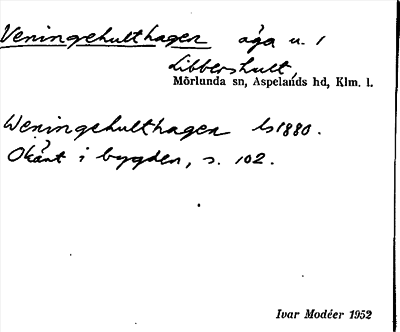 Veningehulthagen äga u. 1
Libbershult,
Mörlunda sn, Aspelands hd, Klm. l.
Weningehulthagen ls 1880.
Okänt i bygden, s. 102.
Ivar Modéer 1952